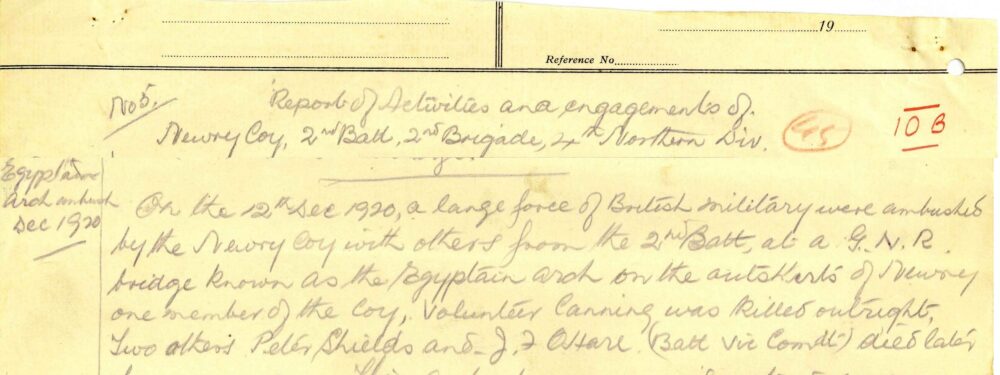 19
Reference No.
No 5. Report of Activities and engagements of
45
10 B
Newry Coy, 2nd Batt, 2nd Brigade, 4th Northern Div.
Egyptain
Arch ambush
Dec 1920
On the 12th Dec 1920, a large force of British military were ambushed
by the Newry Coy with others from the 2nd Batt, at a G.N.R.
bridge known as the Egyptain arch on the outskerts of Newry
one member of the Coy, Volunteer Canning was killed outright,
Two others Peter Shields and J. F OHare (Batt Vic Comdt) died later